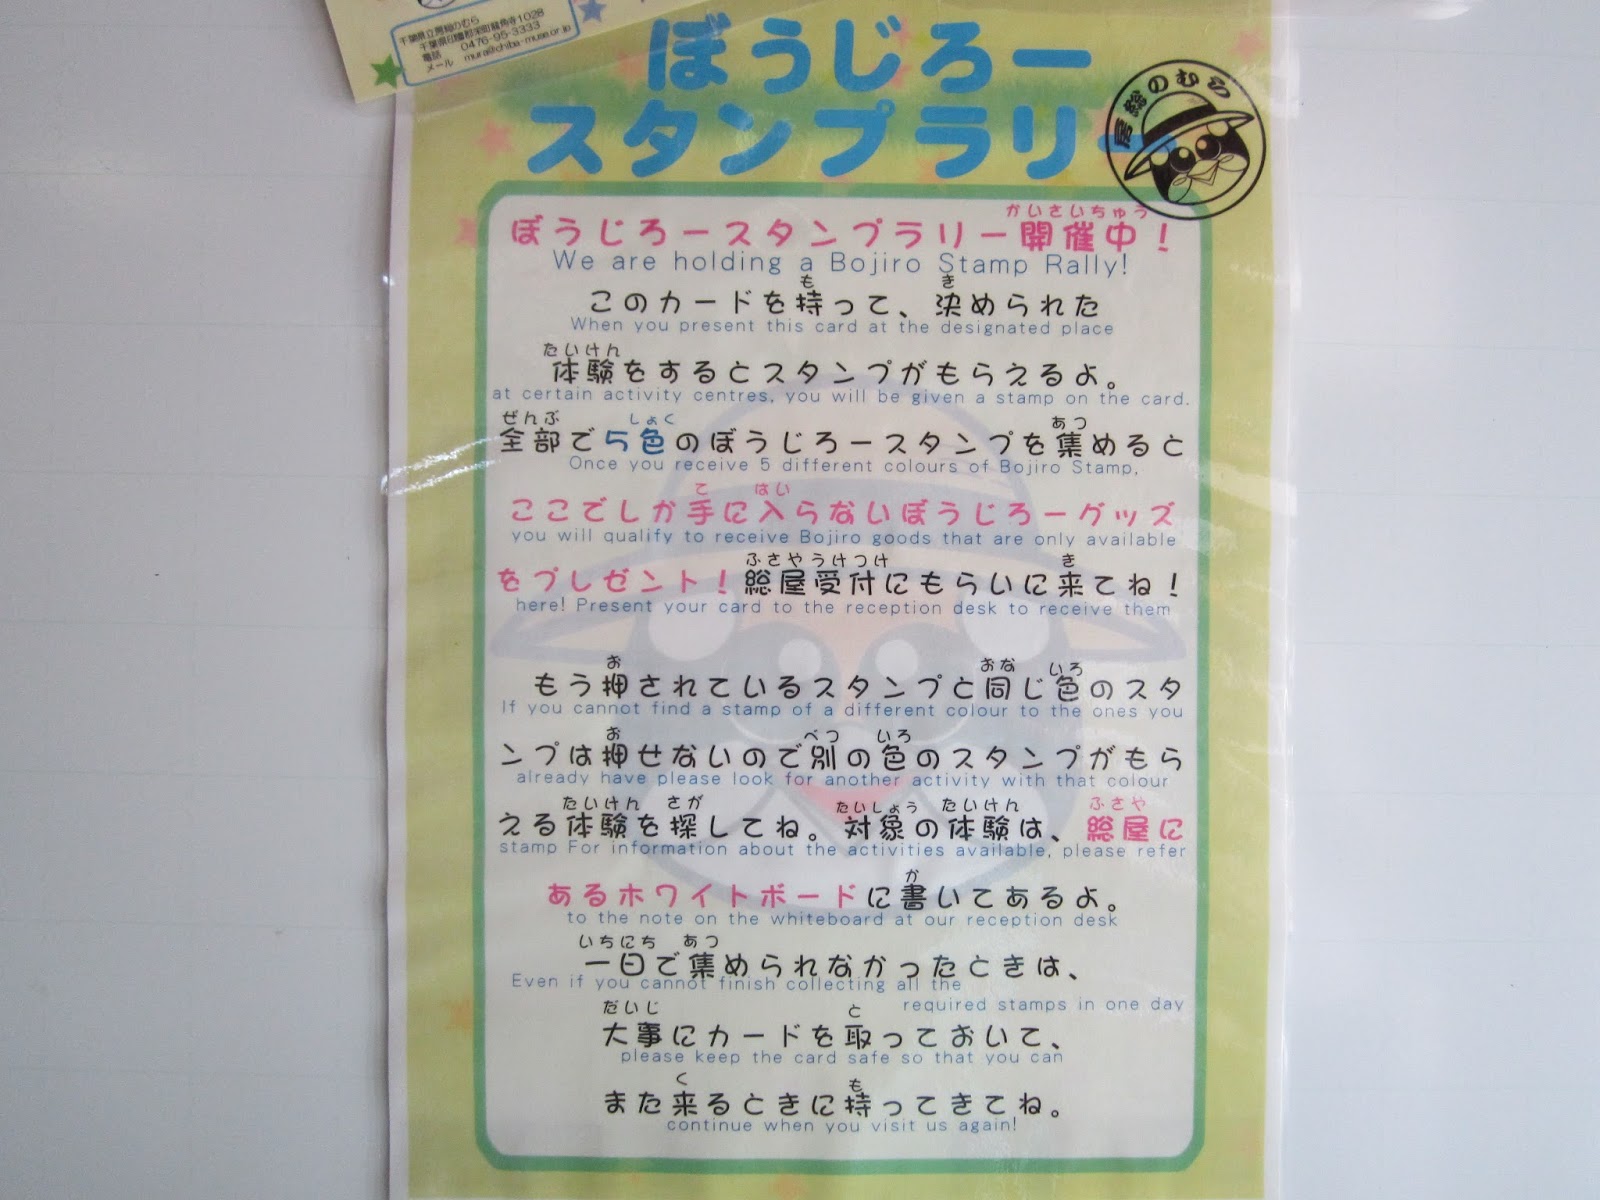 千葉県立房総のむら
千葉県印旛郡栄町龍角寺1028
電話 0476-95-3333
メール mura@chiba-muse.or.jp
ぼうじろー
スタンプラリー
房総のむら
かいさいちゅう
ぼうじろースタンプラリー開催中！
We are holding a Bojiro Stamp Rally!
も き
このカードを持って、決められた
When you present this card at the designated place
たいけん
体験をするとスタンプがもらえるよ。
at certain activity centres, you will be given a stamp on the card.
ぜんぶ しょく あつ
全部で5色のぼうじろースタンプを集めると
Once you receive 5 different colours of Bojiro Stamp,
て はい
ここでしか手に入らないぼうじろーグッズ
you will qualify to receive Bojiro goods that are only available
ふさやうけつけ き
をプレゼント！総屋受付にもらいに来てね！
here! Present your card to the reception desk to receive them
お おな いろ
もう押されているスタンプと同じ色のスタ
If you cannot find a stamp of a different colour to the ones you
お べつ いろ
ンプは押せないので別の色のスタンプがもら
already have please look for another activity with that colour
たいけん さが たいしょう たいけん ふさや
える体験を探してね。対象の体験は、総屋に
stamp For information about the activities available, please refer
か
あるホワイトボードに書いてあるよ。
to the note on the whiteboard at our reception desk
いちにち あつ
一日で集められなかったときは、
Even if you cannot finish collecting all the
required stamps in one day
だいじ と
大事にカードを取っておいて、
please keep the card safe so that you can
く も
また来るときに持ってきてね。
continue when you visit us again!